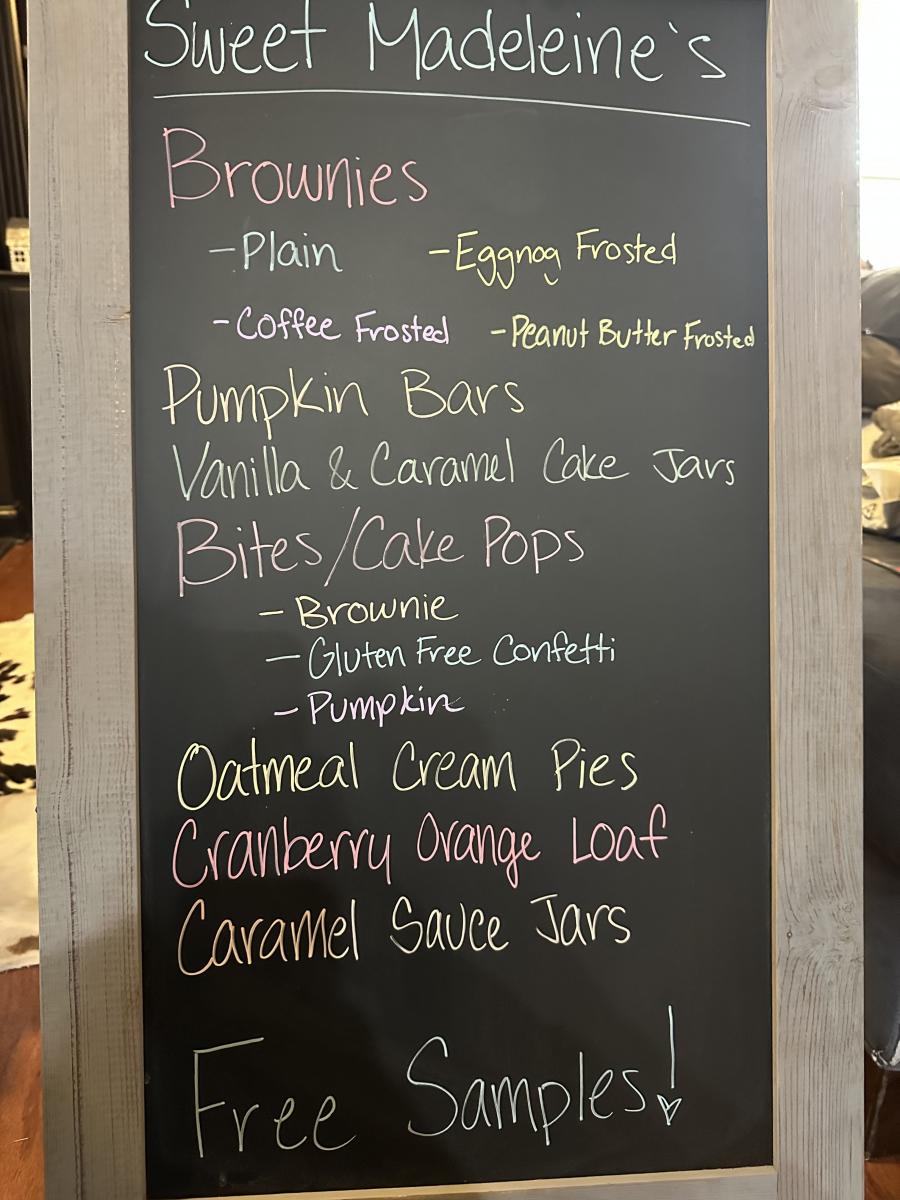 Sweet Madeleine's
Brownies
-Plain -Eggnog Frosted
-Coffee Frosted -Peanut Butter Frosted
Pumpkin Bars
Vanilla & Caramel Cake Jars
Bites/Cake Pops
- Brownie
- Gluten Free Confetti
- Pumpkin
Oatmeal Cream Pies
Cranberry Orange Loaf
Caramel Sauce Jars
Free Samples!